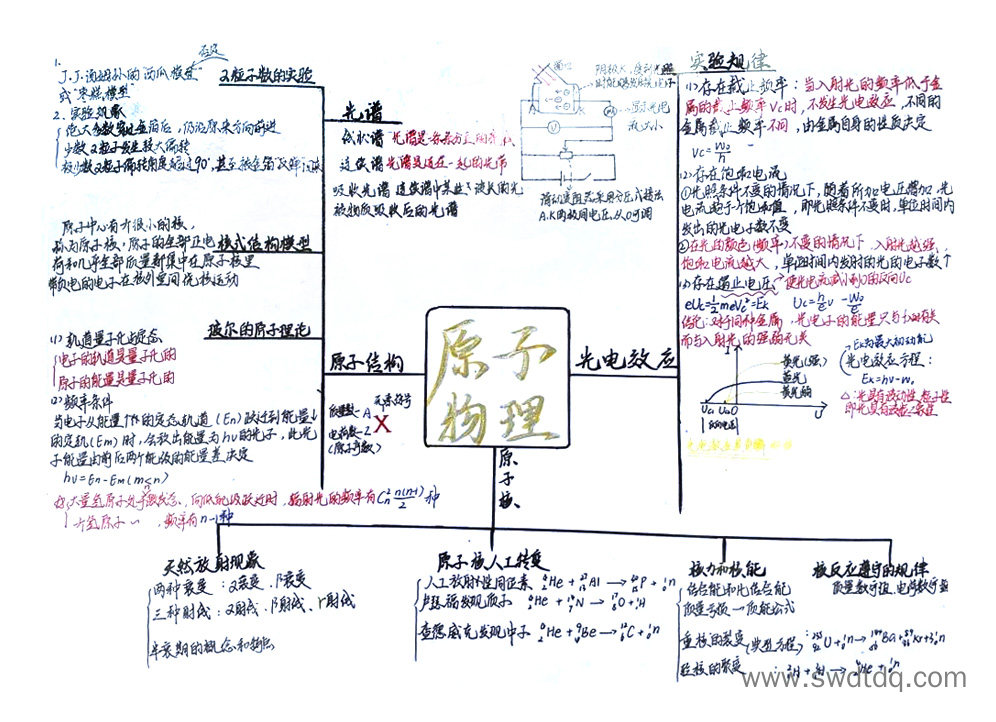 1.
J.J.汤姆孙的"西瓜模型"
或"枣糕模型"
否定
2.实验现象
绝大多数α粒子穿过金箔后，仍沿原来方向前进
少数α粒子发生较大偏转
极少数α粒子偏转角度超过90°，甚至被金箔
α粒子散的实验
原子中心有个很小的核，
称为原子核，原子的全部正电
荷和几乎全部质量都集中在原子核里
带负电的电子在核外空间绕核运动
核式结构模型
玻尔的原子理论
(1)轨道量子化与定态
电子的轨道是量子化的
原子的能量是量子化的
(2)频率条件
当电子从能量较高的定态轨道（En）跃迁到能量
的定轨(Em)时，会放出能量为hν的光子，此光
子能量由前后两个能级的能量差决定
hν=En-Em(m<n)
大量氢原子处于激发态，向低能级跃迁时，辐射光的频率有 C²n n(n-1)/2 种
一个氢原子 ~ ，频率有n-1种
光谱
线状谱 光谱是一条条分立的亮线
连续谱 光谱是连在一起的光带
吸收光谱 连续谱中某些波长的光
被物质吸收后的光谱
滑动变阻器采用分压式接法
A.K的极间电压，从0可调
实验规律
(1)存在截止频率：当入射光的频率低于金
属的截止频率Vc时，不发生光电效应，不同的
金属截止频率不同，由金属自身的性质决定
νc=W₀/h
(2)存在饱和电流
①光照条件不变的情况下，随着所加电压增加，光
电流趋于个饱和值，即光照条件不变时，单位时间内
发出的光电子数不变
②在光的颜色(频率)不变的情况下，入射光越强，
饱和电流越大，单位时间内发射的光的电子数↑
(3)存在遏止电压，使光电流减小到0的反向Uc
eUc=½meVc²=Ek Uc=h/e ν-W₀/e
结论：对于同种金属，光电子的能量只与
而与入射光的强弱无关
I
黄光(强)
蓝光
黄光
Uc1 Uc2 O
U
反向电压
Ek为最大初动能
光电效应方程：
Ek=hν-W₀
原子结构
质量数-A 元素符号
X
电荷数-Z
(原子序数)
原子
物理
光电效应
原子核、
天然放射现象
两种衰变：α衰变、β衰变
三种射线：α射线、β射线、γ射线
半衰期的概念和
原子核人工转变
人工放射性同位素 ⁴₂He + ²⁷₁₃Al → ³⁰₁₅P + ¹₀n
卢瑟福发现质子 ⁴₂He + ¹⁴₇N → ¹⁷₈O + ¹₁H
查德威克发现中子 ⁴₂He + ⁹₄Be → ¹²₆C + ¹₀n
核力和核能
结合能和比结合能
质量亏损—质能公式
重核的裂变(典型方程)：²³⁵₉₂U + ¹₀n → ¹⁴⁴₅₆Ba + ⁸⁹₃₆Kr + 3¹₀n
轻核的聚变：²₁H + ³₁H → ⁴₂He + ¹₀n
核反应遵守的规律
质量数守恒、电荷数守恒
www.swdtdq.com